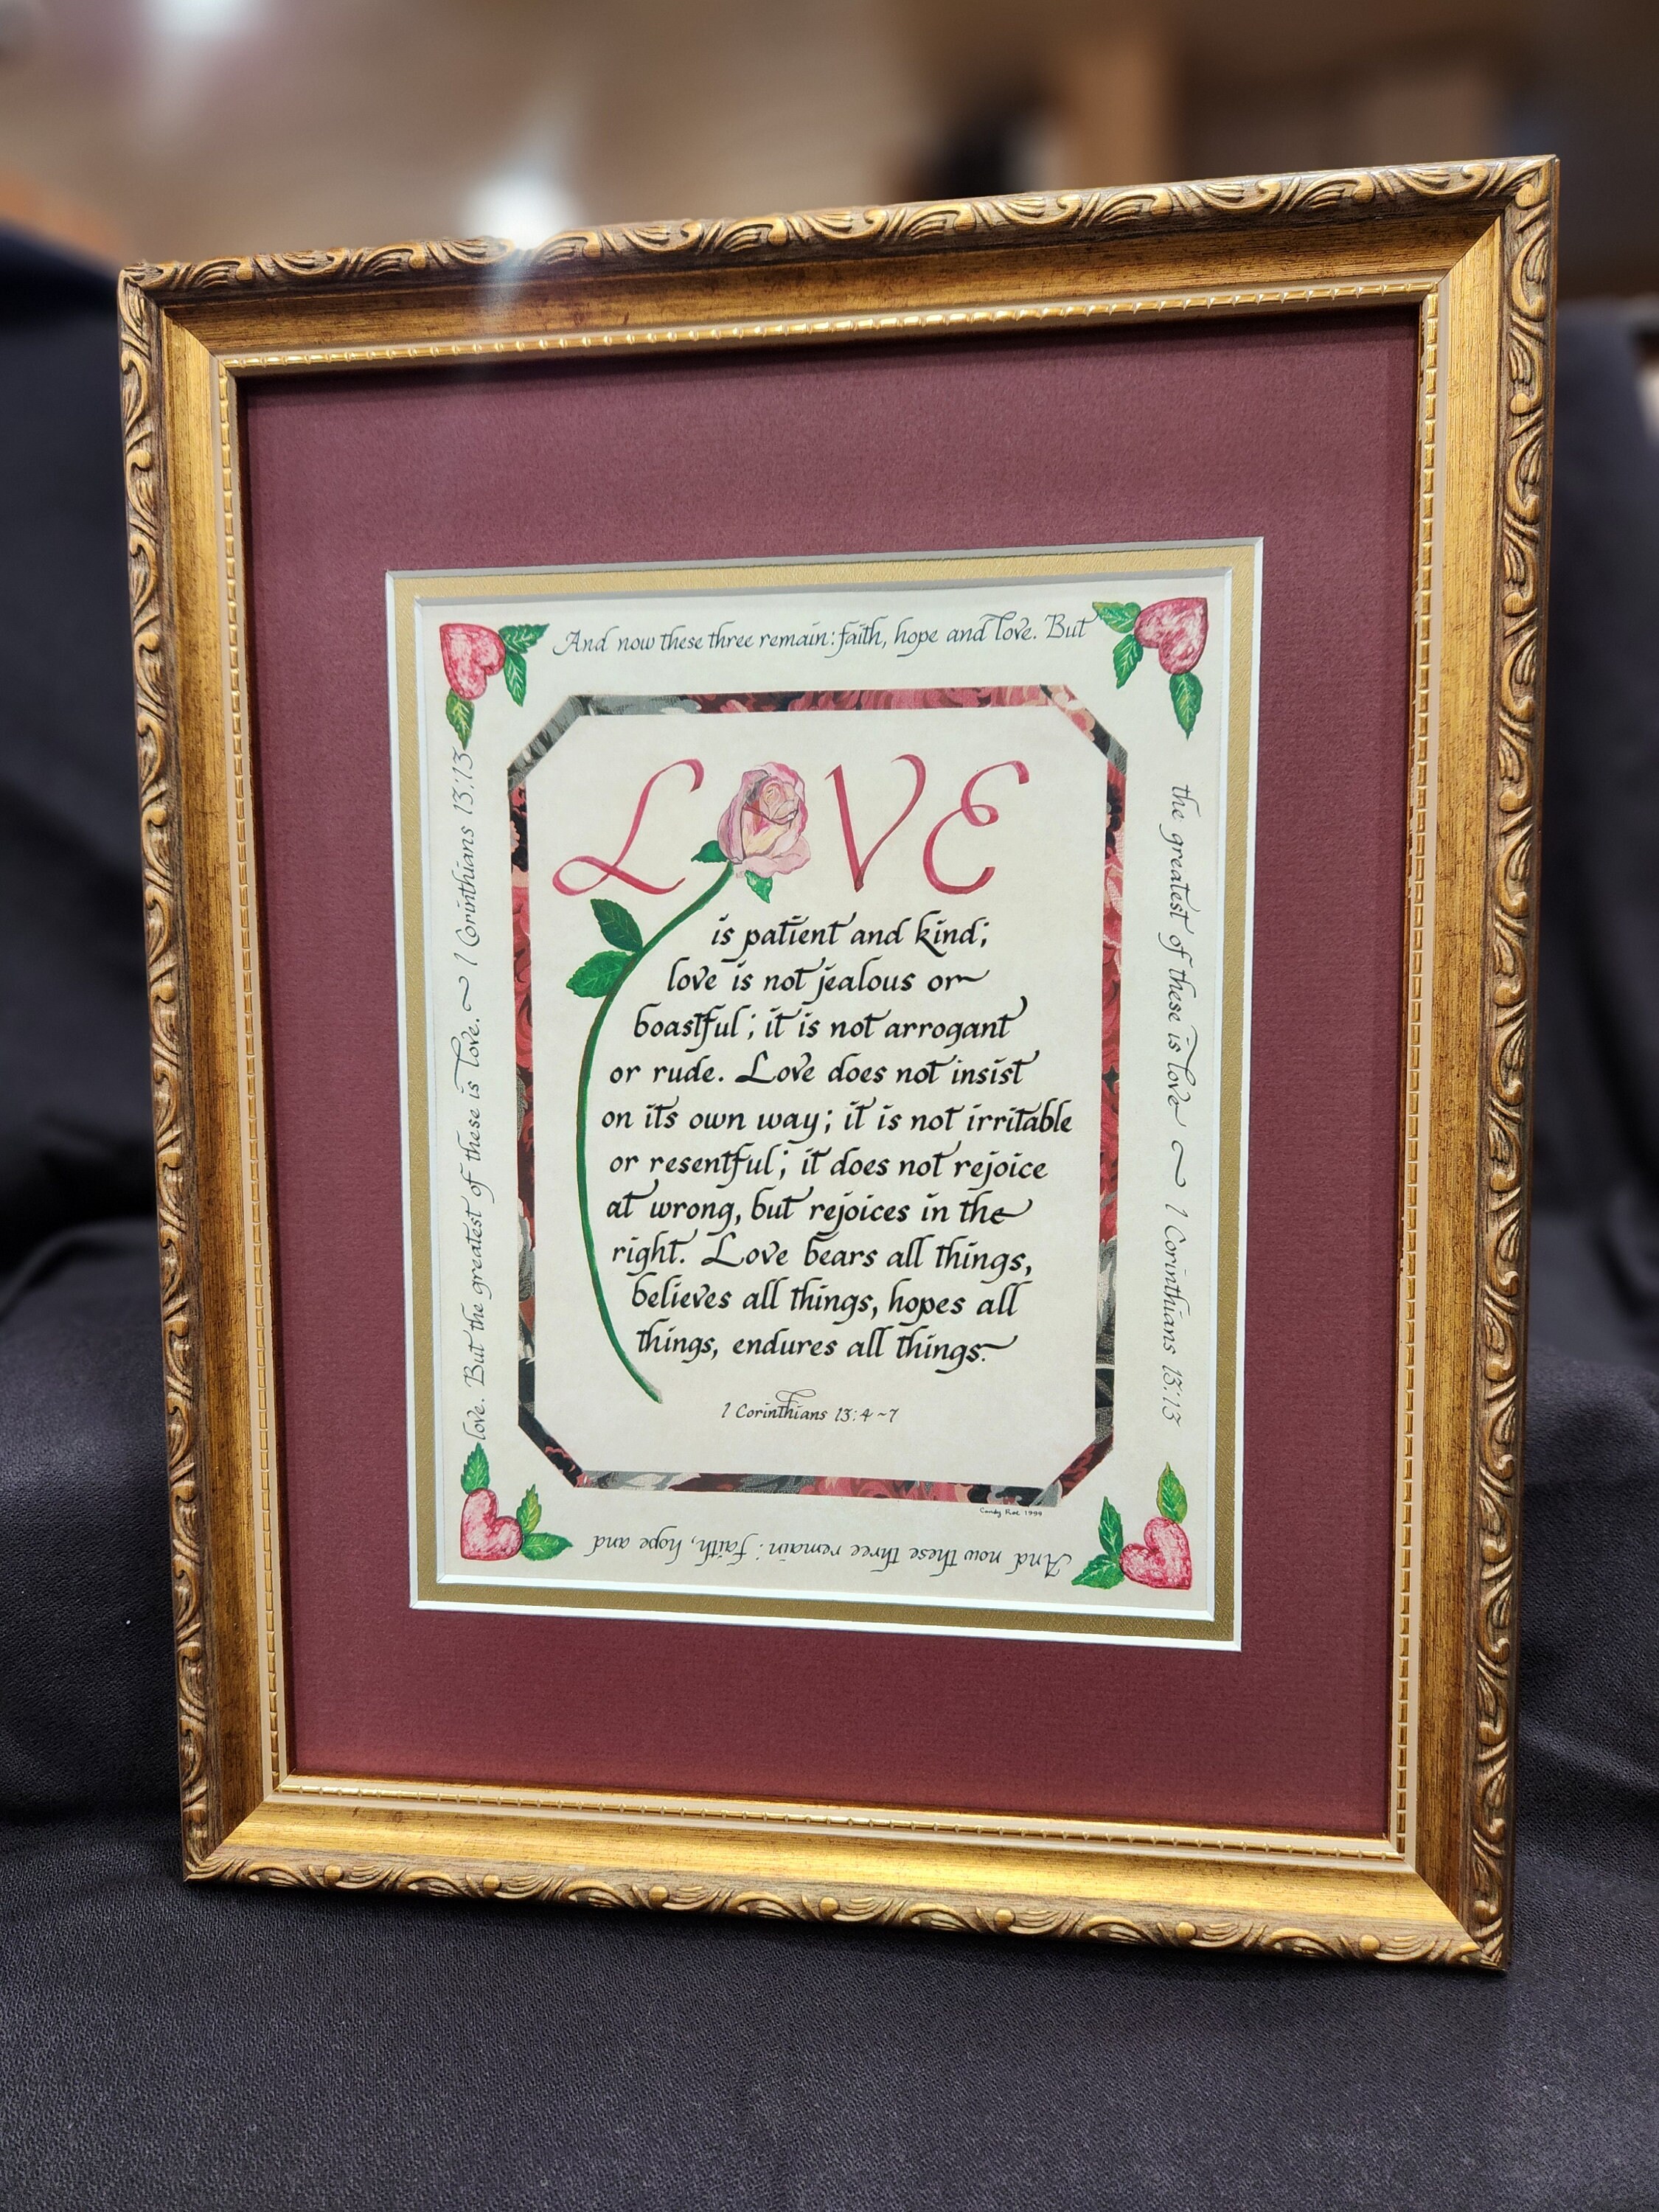 And now these three remain: faith, hope and love. But
the greatest of these is love ~ 1 Corinthians 13:13
And now these three remain: faith, hope and
love. But the greatest of these is love. ~ 1 Corinthians 13:13
LOVE
is patient and kind;
love is not jealous or
boastful; it is not arrogant
or rude. Love does not insist
on its own way; it is not irritable
or resentful; it does not rejoice
at wrong, but rejoices in the
right. Love bears all things,
believes all things, hopes all
things, endures all things.
1 Corinthians 13:4~7
Candy 1999